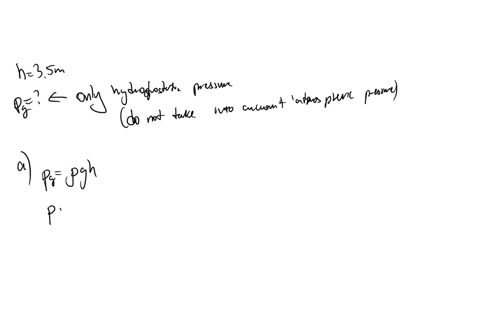 h=3.5m
pg=? ← only hydropostatic pressure
(do not take into account atmospheric pressure)
a) pg= ρgh
p.